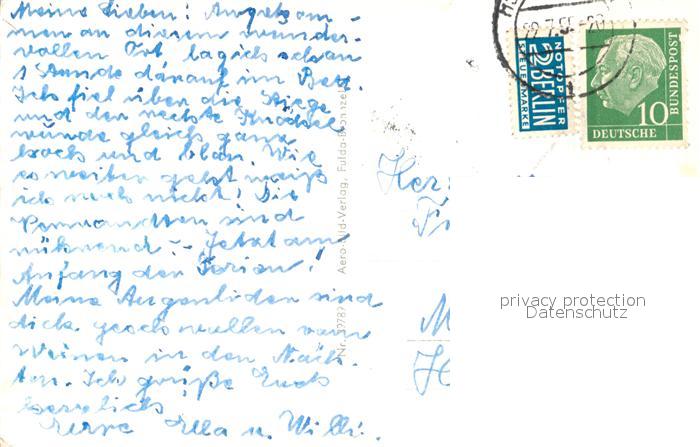 Meine Lieben! Angekom-
men an diesem wunder-
vollen Ort lag ich schon
1 Stunde darauf im Bett.
Ich fiel über die Stiege
und der rechte Knöchel
wurde gleich ganz
hoch und blau. Wie
es weiter geht weiß
ich noch nicht! Die
Verwandten sind
rührend – Jetzt am
Anfang der Ferien!
Meine Augenlider sind
dick geschwollen vom
Weinen in den Näch-
ten. Ich grüße Euch
herzlich
Eure Ella u. Willi.
Aero-Bild-Verlag, Fulda-Bronnzell
Her
Fr
M
H
22.7.55-20
NOTOPFER
2 BERLIN
STEUERMARKE
10
DEUTSCHE
BUNDESPOST
privacy protection
Datenschutz